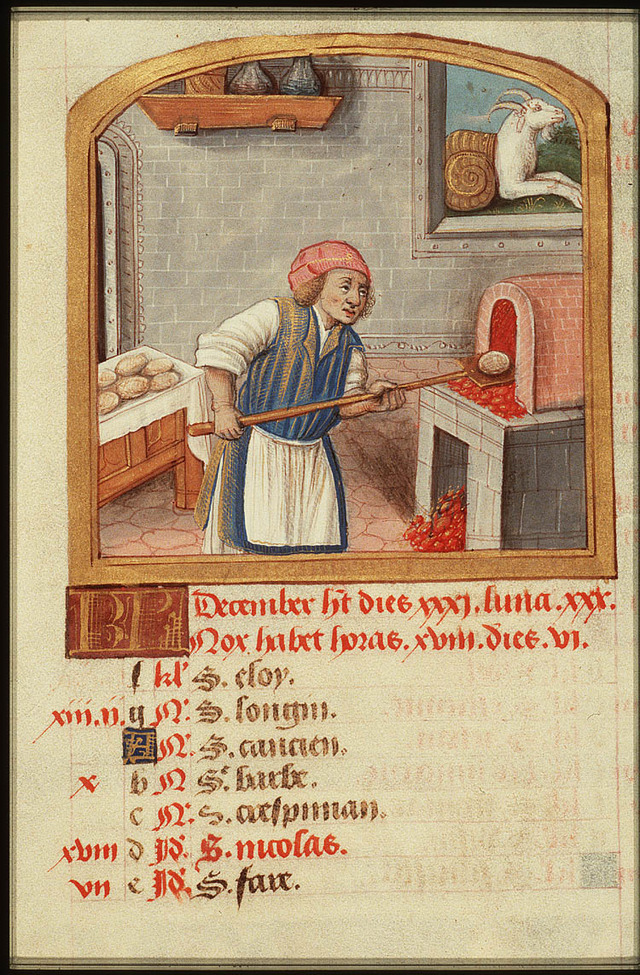 KL December ht dies xxxj. luna. xxx.
Nox habet horas. xviii. dies. vi.
f kl' S. eloy.
xiii.ii. g N. S. longin.
A N. S. cancien.
x b N S. barbe.
c N. S. crespinian.
xviii d Jd. S. nicolas.
vii e Jd. S. fare.